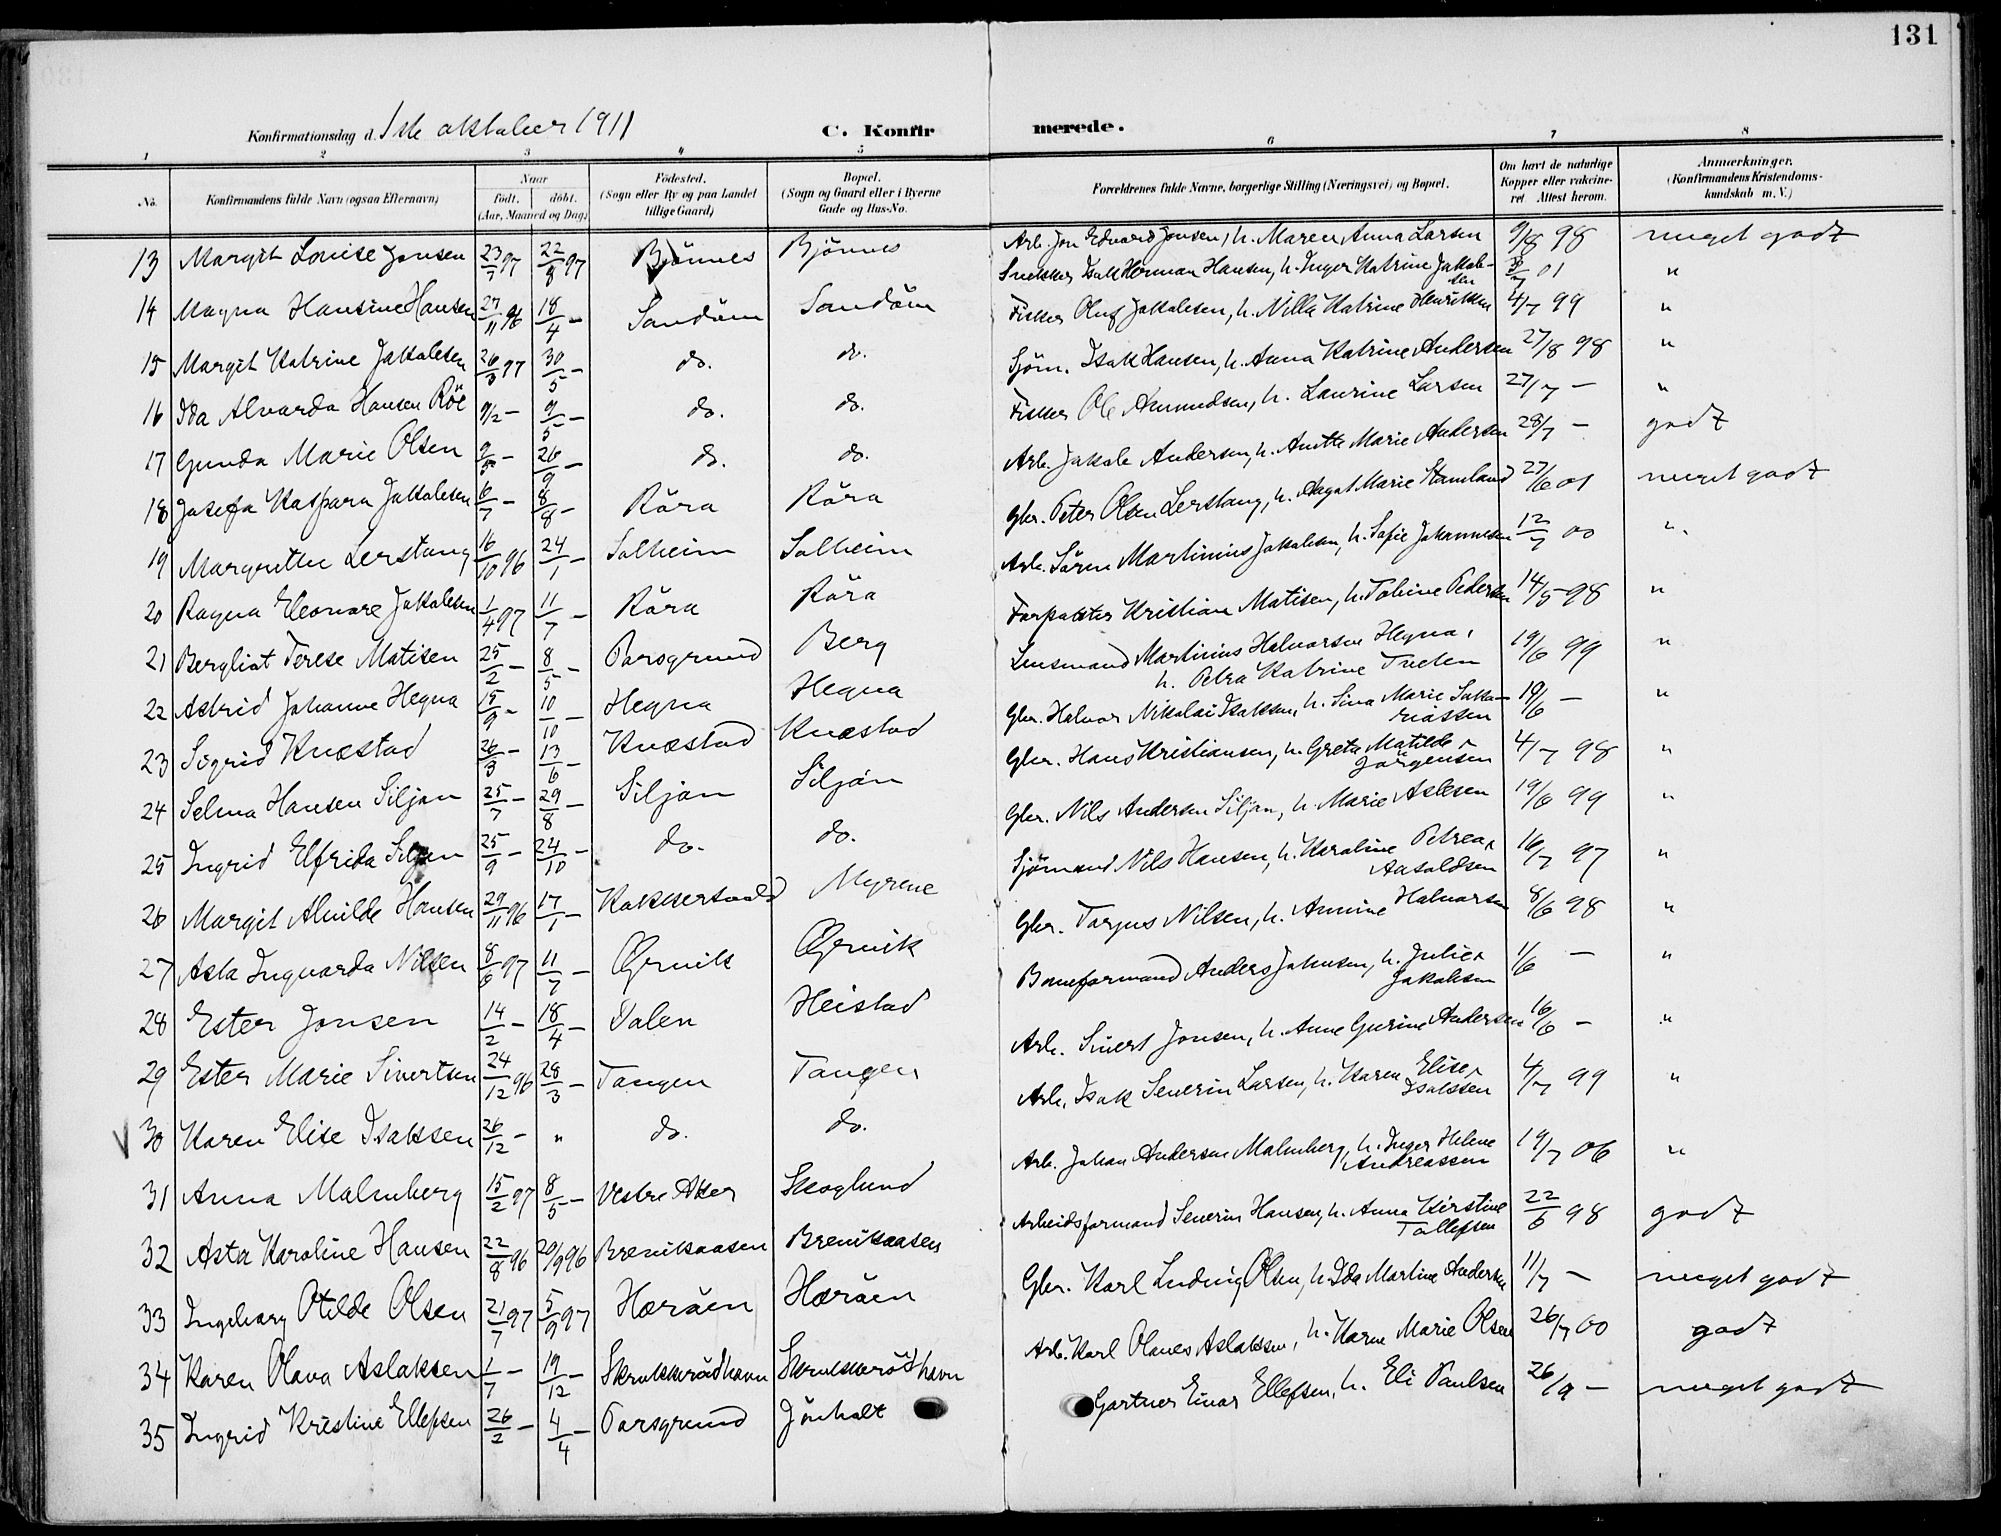 131
Konfirmationsdag d. 1ste oktober 1911 C. Konfirmerede.
1 2 3 4 5 6 7 8
No. Konfirmandens fulde Navn (ogsaa Efternavn) Naar født. døbt. (Aar, Maaned og Dag) Fødested. (Sogn eller By og paa Landet tillige Gaard) Bopæl. (Sogn og Gaard eller i Byerne Gade og Hus-No. Forældrenes fulde Navne, borgerlige Stilling (Næringsvei) og Bopæl. Om havt de naturlige Kopper eller vakcineret Attest herom. Anmærkninger. (Konfirmandens Kristendomskundskab m. V.)
13 Margit Louise Jonsen 23/7 97 22/8 97 Bjönnes Bjönnes Arb. Jon Edvard Jonsen, h. Maren Anna Larsen 9/8 98 meget godt
14 Magna Hansine Hansen 27/11 96 18/4 – Sandöen Sandöen Snekker Isak Herman Hansen, h. Inger Katrine Jakobsen 01 "
15 Margit Katrine Jakobsen 26/3 97 30/5 – do. do. Fisker Oluf Jakobsen, h. Nilla Katrine Henriksen 4/7 99 "
16 Ida Alvarda Hansen Röe 9/2 – 9/5 – do. do. Sjöm. Isak Hansen, h. Anna Katrine Andersen 27/8 98 "
17 Gunda Marie Olsen 9/5 – 26/9 – do. do. Fisker Ole Amundsen, h. Laurine Larsen 27/7 – "
18 Josefa Kaspara Jakobsen 6/7 – 8/8 – Röra Röra Arb. Jakob Andersen, h. Anitte Marie Andersen 28/7 – godt
19 Margrethe Lerstang 16/10 96 24/1 – Solheim Solheim Gbr. Peter Olsen Lerstang, h. Aagot Marie Stamland 27/6 01 meget godt
20 Ragna Eleonore Jakobsen 1/4 97 11/7 – Röra Röra Arb. Sören Martinius Jakobsen, h. Sofie Johannesen 12/7 00 "
21 Bergliot Terese Matisen 25/2 – 8/5 – Porsgrund Berg Forpakter Kristian Matisen, h. Tobine Pedersen 14/5 98 "
22 Astrid Johanne Hegna 15/9 – 10/10 – Hegna Hegna Lensmand Martinius Halvorsen Hegna, h. Petra Katrine Tveten 19/6 99 "
23 Sigrid Knæstad 26/3 – 13/6 – Knæstad Knæstad Gbr. Halvor Nikolai Isaksen, h. Sina Marie Sakariassen 19/6 – "
24 Selma Hansen Siljan 25/7 – 29/8 – Siljan Siljan Gbr. Hans Kristiansen, h. Greta Matilde Jörgensen 4/7 98 "
25 Ingrid Elfrida Siljan 25/9 – 24/10 – do. do. Gbr. Nils Andersen Siljan, h. Marie Aslesen 19/6 99 "
26 Margit Alvilde Hansen 29/11 96 17/1 – Kokkersvold Myrene Sjömand Nils Hansen, h. Karoline Petrea Aasoldsen 16/7 97 "
27 Asta Ingvarda Nilsen 8/6 97 11/7 – Ørvik Ørvik Gbr. Torjus Nilsen, h. Annine Halvorsen 8/6 98 "
28 Ester Jonsen 14/2 – 18/4 – Dalen Heistad Baneformand Anders Johnsen, h. Julie Jakobsen 1/6 – "
29 Ester Marie Sivertsen 24/12 96 28/3 – Tangen Tangen Arb. Sivert Jonsen, h. Anne Gurine Andersen 16/6 – "
V 30 Karen Elise Isaksen 26/12 – " do. do. Arb. Isak Severin Larsen, h. Karen Elise Isaksen 4/7 99 "
31 Anna Malmberg 15/2 97 8/5 – Vestre Aker Skoglund Arb. Johan Andersen Malmberg, h. Inger Helene Andreassen 19/7 06 "
32 Asta Karoline Hansen 22/8 96 20/9 96 Breviksaasen Breviksaasen Arbeidsformand Severin Hansen, h. Anna Kirstine Tollefsen 22/6 98 godt
33 Ingeborg Otilde Olsen 21/7 97 5/9 97 Heröen Heröen Gbr. Karl Ludvig Olsen, h. Ida Martine Andersen 11/7 – meget godt
34 Karen Olava Aslaksen 1/7 – 19/12 – Skrukkerödhavn Skrukkerödhavn Arb. Karl Olaves Aslaksen, h. Karen Marie Olsen 26/7 00 godt
35 Ingrid Kristine Ellefsen 26/2 – 4/4 – Porsgrund Jönholt Gartner Einar Ellefsen, h. Eli Paulsen 26/9 – meget godt